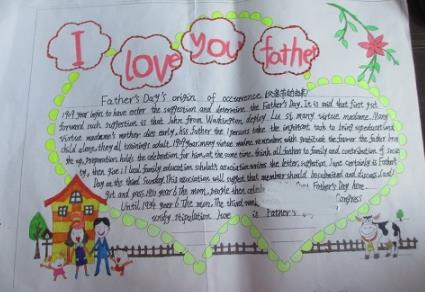 I love you father
Father's Day's origin of occurrence (父亲节的由来)
1909 year begin to have enter the suggestion and determine the Father's Day. It is said that first put
forward such suggestion is that John from Washington, deploy Lu si many virtue madame. Many
virtue madame's mother dies early, his father the 1 person take the important task to bring up educational
child alone, they all trainings adult. 1909 year, many virtue madame remember with gratitude the favour the father
up, preparation holds the celebration for him, at the same time, think all father to family and contribution of soci
ty, then give it local family education scholar's association writes the letter, suggestion June certainly is Father's
Day on the third Sunday. This association will suggest that member should
get and pass. 1910 year 6 The mom, people then celeb Father's Day here.
Until 1924 year 6 The mom, The third Congress
verify stipulation is Father's